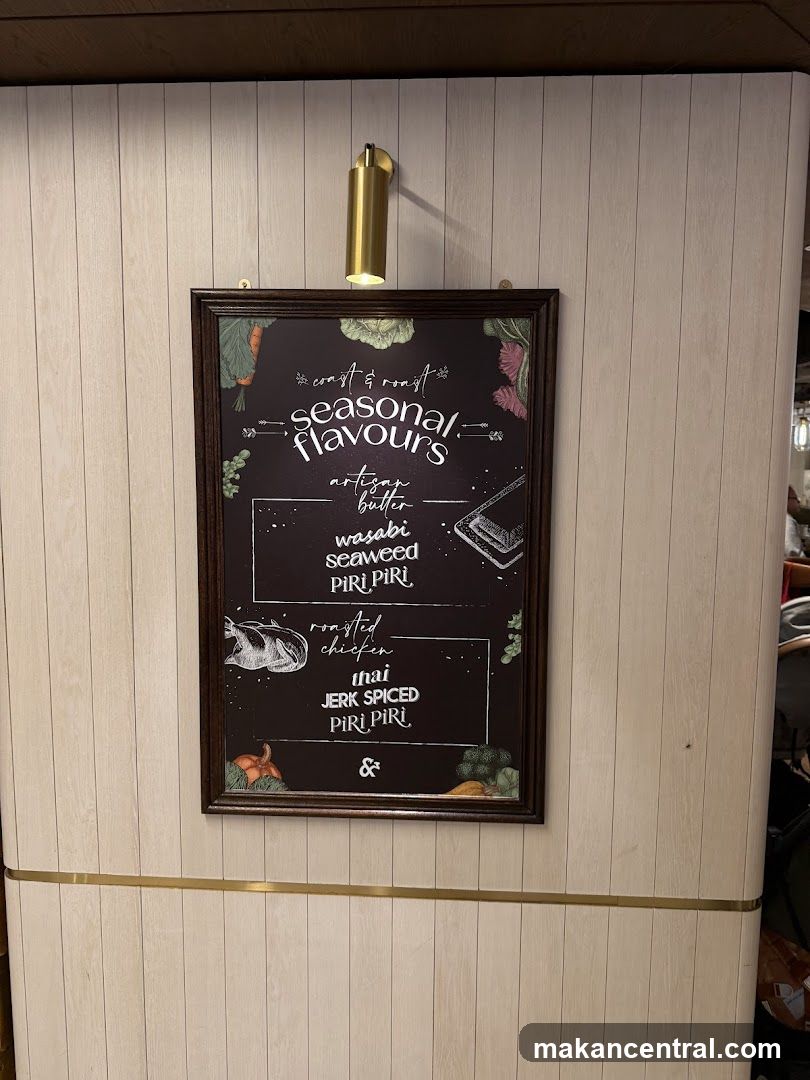 coast & roast
seasonal
flavours
artisan
butter
wasabi
seaweed
PiRi PiRi
roasted
chicken
thai
JERK SPICED
PiRi PiRi
&
makancentral.com